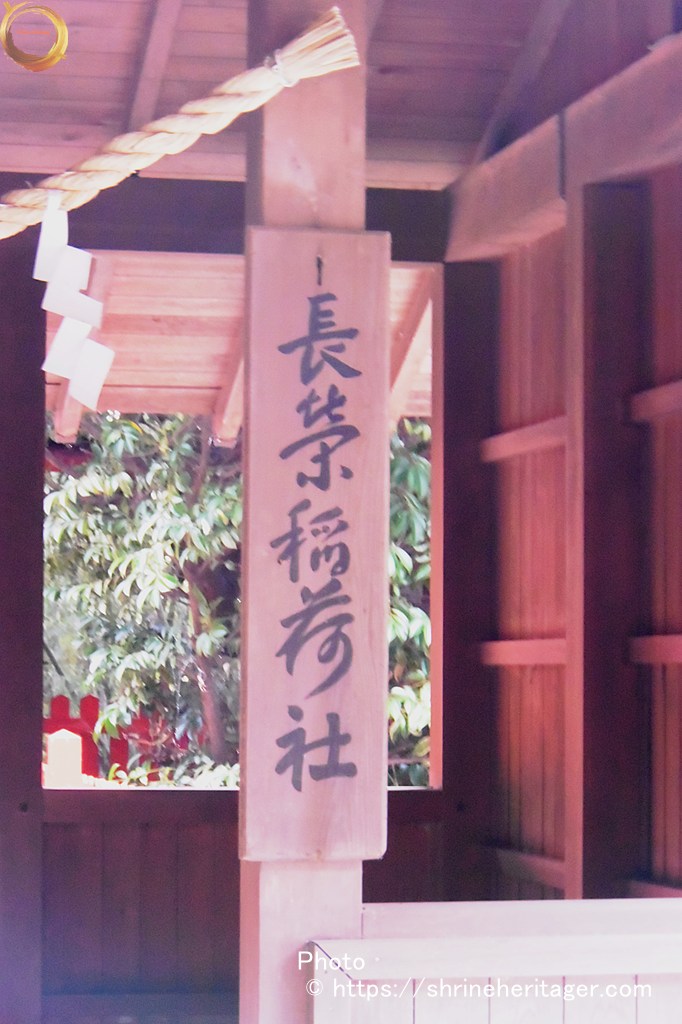 長榮稲荷社
Photo
© https://shrineheritager.com/